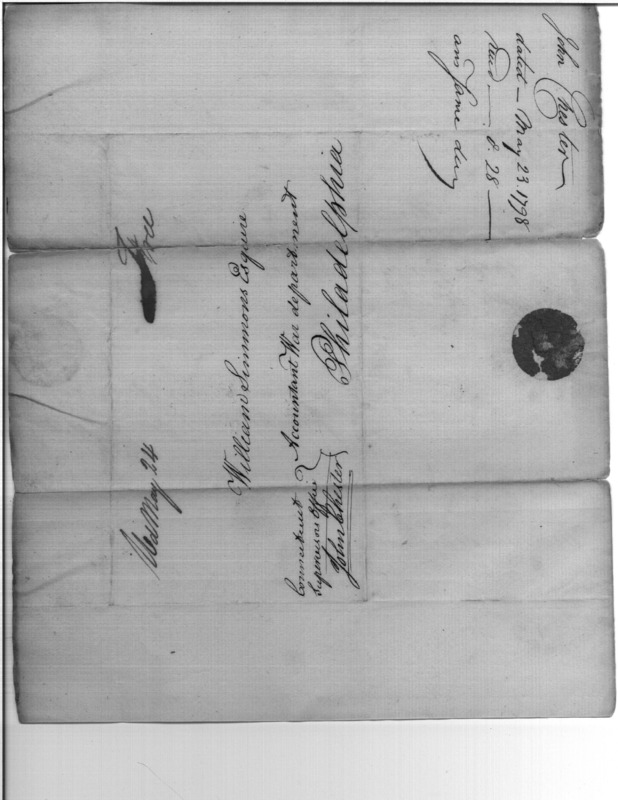 John Chester
dated - May 23 1798
Recd - 28 -
ans same day
Free
May 24
William Simmons Esquire
Accountant War department
Philadelphia
Connecticut
Supervisors Office
John Chester